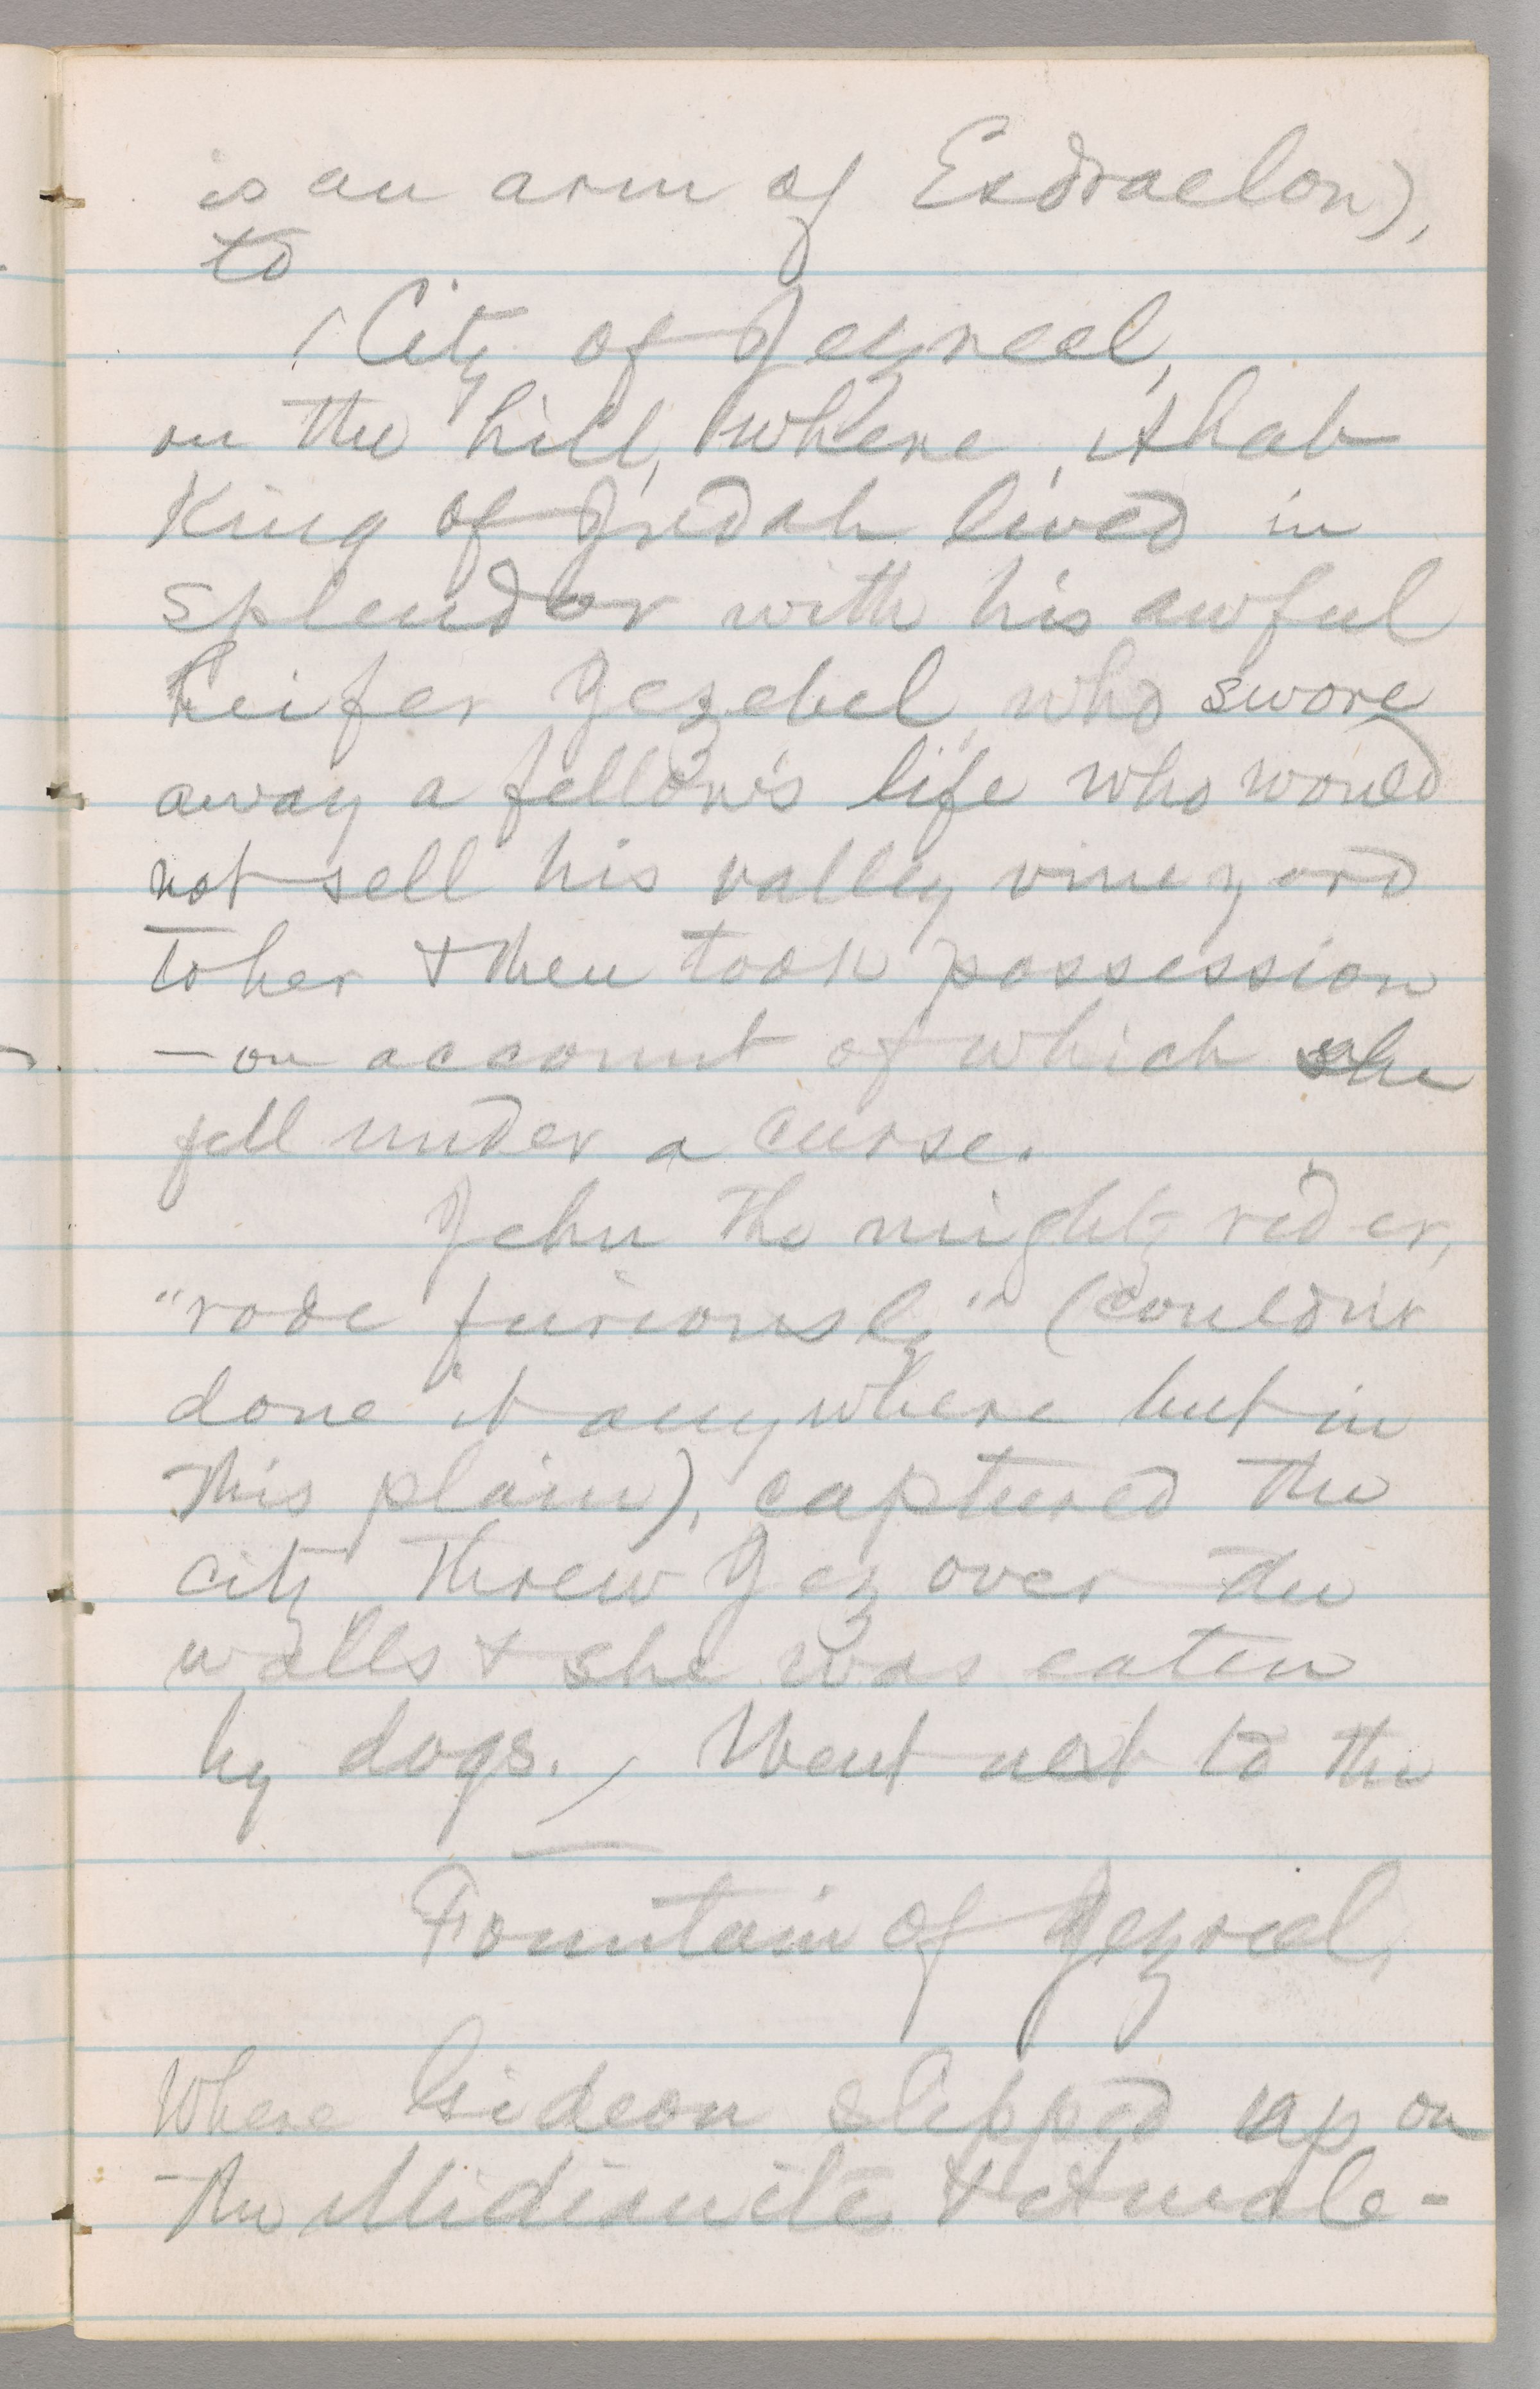 is an arm of Esdraelon),
to
(City of Jezreel,
on the hill, where Ahab
King of Judah lived in
splendor with his awful
heifer Jezebel who swore
away a fellow's life who would
not sell his valley vineyard
to her & then took possession
— on account of which she
fell under a curse.
Jehu the mighty rider,
"rode furiously" (couldn't
done it anywhere but in
this plain), captured the
city threw Jez over the
walls & she was eaten
by dogs.) Went next to the
Fountain of Jezreel,
Where Gideon slipped up on
the Midianites & Amale-